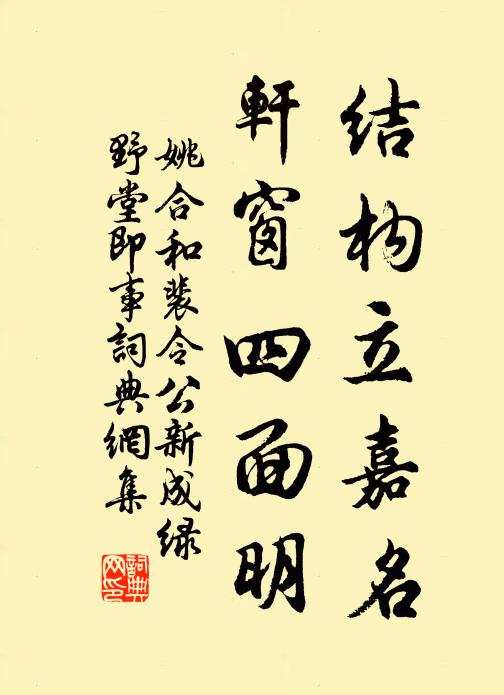 结构立嘉名
軒窗四面明
姚合和裴令公新成绿
野堂即事詞典網集
詞典
网印